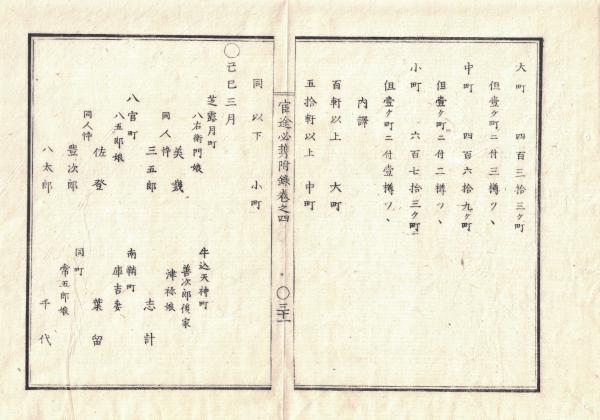 大町 四百三拾三ケ町
但壹ケ町ニ付三樽ツヽ
中町 四百六拾九ケ町
但壹ケ町ニ付二樽ツヽ
小町 六百七拾三ケ町
但壹ケ町ニ付壹樽ツヽ
内譯
百軒以上 大町
五拾軒以上 中町
同以下 小町
官途必携附録卷之四
〇三十一
〇己巳三月
芝露月町
八右衛門娘
美幾
同人忰
三五郎
八官町
八五郎娘
佐登
同人忰
豊次郎
八太郎
牛込天神町
善次郎後家
津祢娘
志計
南鞘町
庫吉妻
葉留
同町
常五郎娘
千代